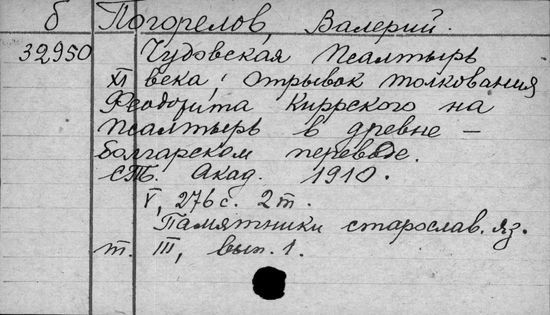 б Погорелов, Валерий.
32950 Чудовская Псалтырь
XI века, отрывок толкования
Феодорита Киррского на
Псалтырь в древне –
болгарском переводе.
СПб. Акад. 1910.
V, 276 с. 2 т.
Памятники старослав. яз.
т. III, вып. 1.